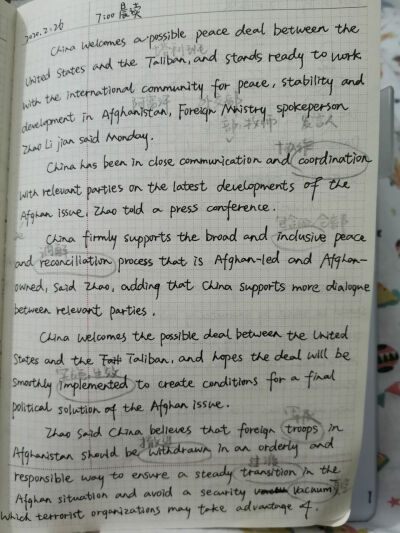 2020.2.26
7:00 晨读
China welcomes a possible peace deal between the
塔利班
United States and the Taliban, and stands ready to work
with the international community for peace, stability and
阿富汗
外交部
development in Afghanistan, Foreign Mnistry spokeperson
部;牧师
发言人
Zhao Li jian said Monday.
协作
China has been in close communication and coordination
with relevant parties on the latest developments of the
Afghan issue. Zhao told a press conference.
China firmly supports the broad and inclusive peace
and reconciliation process that is Afghan-led and Afghan-
owned, said Zhao, adding that China supports more dialogue
between relevant parties.
China welcomes the possible deal between the United
States and the Taliban, and hopes the deal will be
smothly implemented to create conditions for a final
political solution of the Afghan issue.
军队
Zhao said China believes that foreign troops in
Afghanistan should be withdrawn in an orderly and
responsible way to ensure a steady transition in the
Afghan situation and avoid a security vacnum
which terrorist organizations may take advantage of.